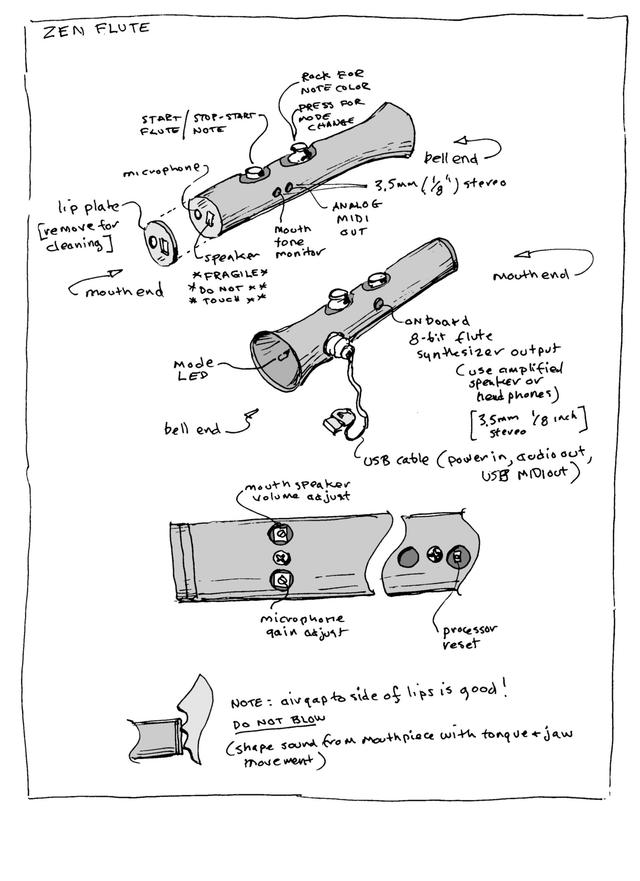 ZEN FLUTE
ROCK FOR
NOTE COLOR
PRESS FOR
MODE
CHANGE
START / STOP-START
FLUTE / NOTE
microphone
bell end
3.5mm (1/8") stereo
ANALOG
MIDI
OUT
mouth
tone
monitor
lip plate
[remove for
cleaning]
speaker
*FRAGILE*
*DO NOT**
*TOUCH**
mouth end
mouth end
onboard
8-bit flute
synthesizer output
(use amplified
speaker or
headphones)
[3.5mm 1/8 inch
stereo]
Mode
LED
bell end
USB cable (power in, audio out,
USB MIDI out)
mouth speaker
volume adjust
microphone
gain adjust
processor
reset
NOTE: air gap to side of lips is good!
DO NOT BLOW
(shape sound from mouthpiece with tongue + jaw
movement)